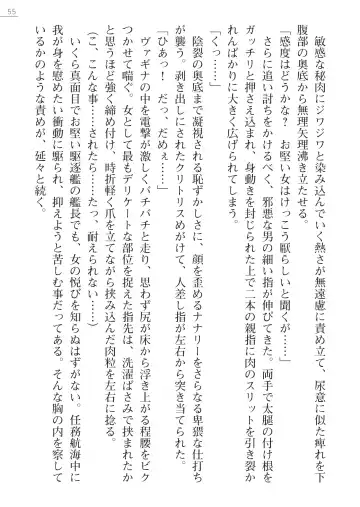 55
敏感な秘肉にジワジワと染み込んでいく熱さが無遠慮に責め立て、尿意に似た痺れを下
腹部の奥底から無理矢理沸き立たせる。
「感度はどうかな？　お堅い女はけっこう厭らしいと聞くが……」
さらに追い討ちをかけるべく、邪悪な男の細い指が伸びてきた。両手で太腿の付け根を
ガッチリと押さえ込まれ、身動きを封じられた上で二本の親指に肉のスリットを引き裂か
れんばかりに大きく広げられてしまう。
「くっ……」
陰裂の奥底まで凝視される恥ずかしさに、顔を歪めるナナリーをさらなる卑猥な仕打ち
が襲う。剥き出しにされたクリトリスめがけて、人差し指が左右から突き当てられた。
「ひあっ！　だっ、だめぇ……」
ヴァギナの中を電撃が激しくバチバチと走り、思わず尻が床から浮き上がる程腰をビク
つかせて喘ぐ。女として最もデリケートな部位を捉えた指先は、洗濯ばさみで挟まれたか
のように強く締め付け、時折軽く爪を立てながら挟み込んだ肉粒を左右に捻る。
（こ、こんな事……されたら……たっ、耐えられない……）
いくら真面目でお堅い駆逐艦の艦長でも、女の悦びを知らぬはずがない。任務航海中に
我が身を慰めたい衝動に駆られ、抑えようと苦しむ事だってある。そんな胸の内を察して
いるかのような責めが、延々と続く。